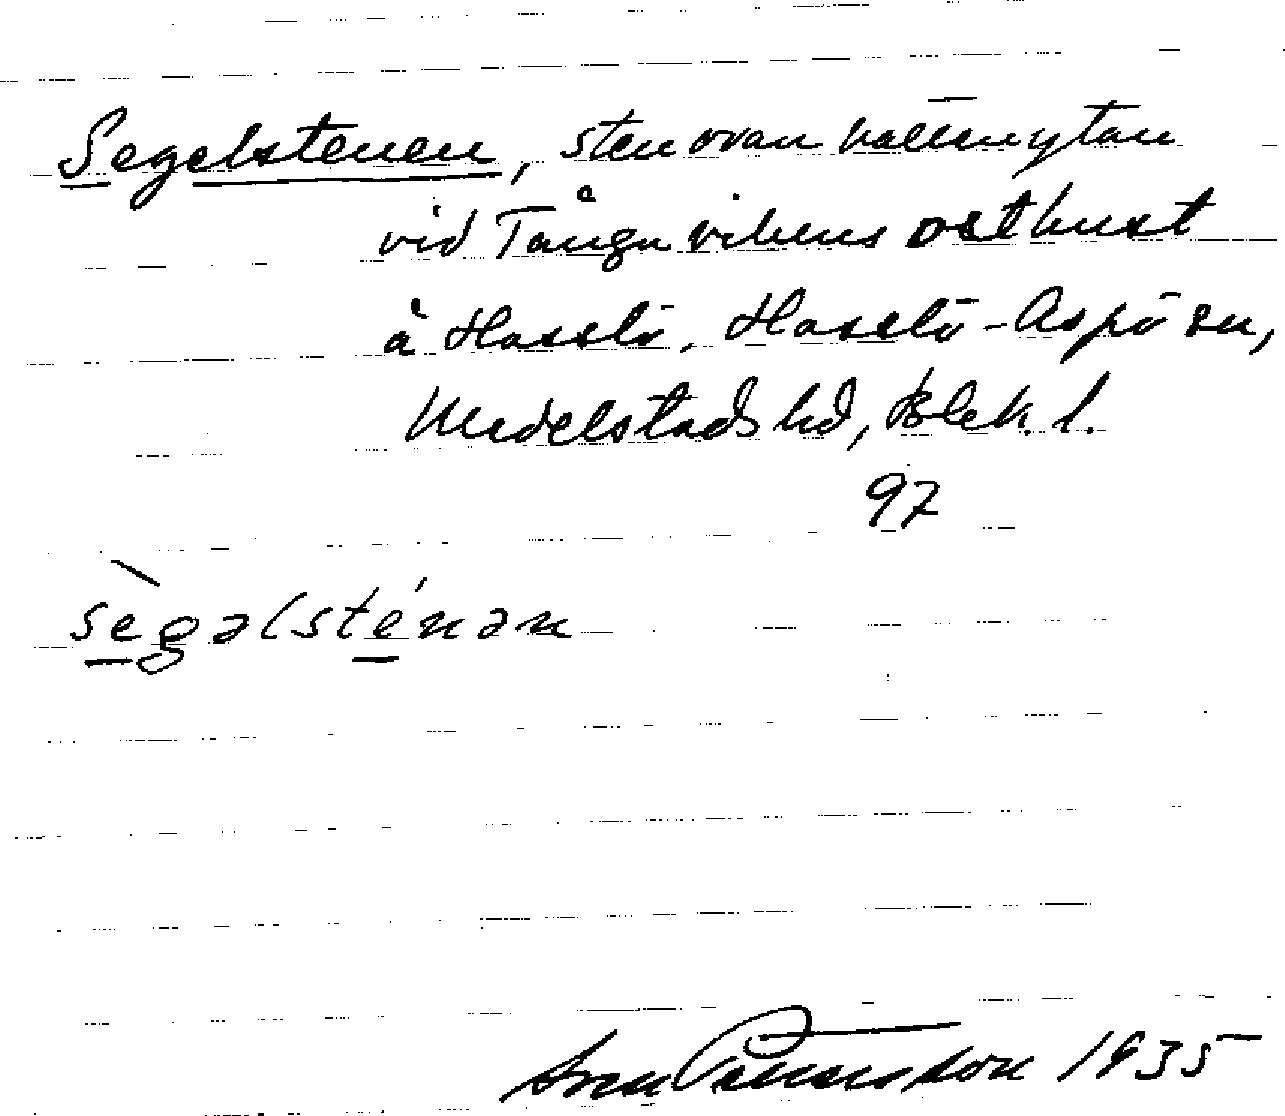 Segelstenen, sten ovan vattenytan
vid Tånga vikens ostkust
å Hasslö, Hasslö-Aspö sn,
Medelstads hd, Blek. l.
97
sègəlsténən
Sven 1935